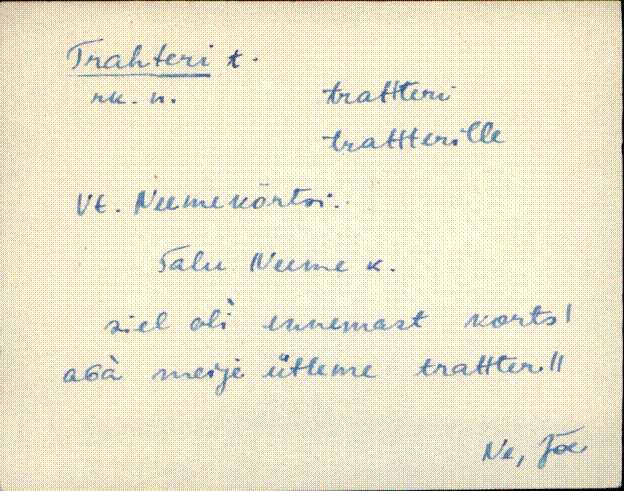 Trahteri t.
rk. n. trahtteri
trahtterille
Vt. Neemekõrtsi.
Talu Neeme k.
siel oli ennemast korts!
aGà meije ütleme trahter!!
Ne, Jõe